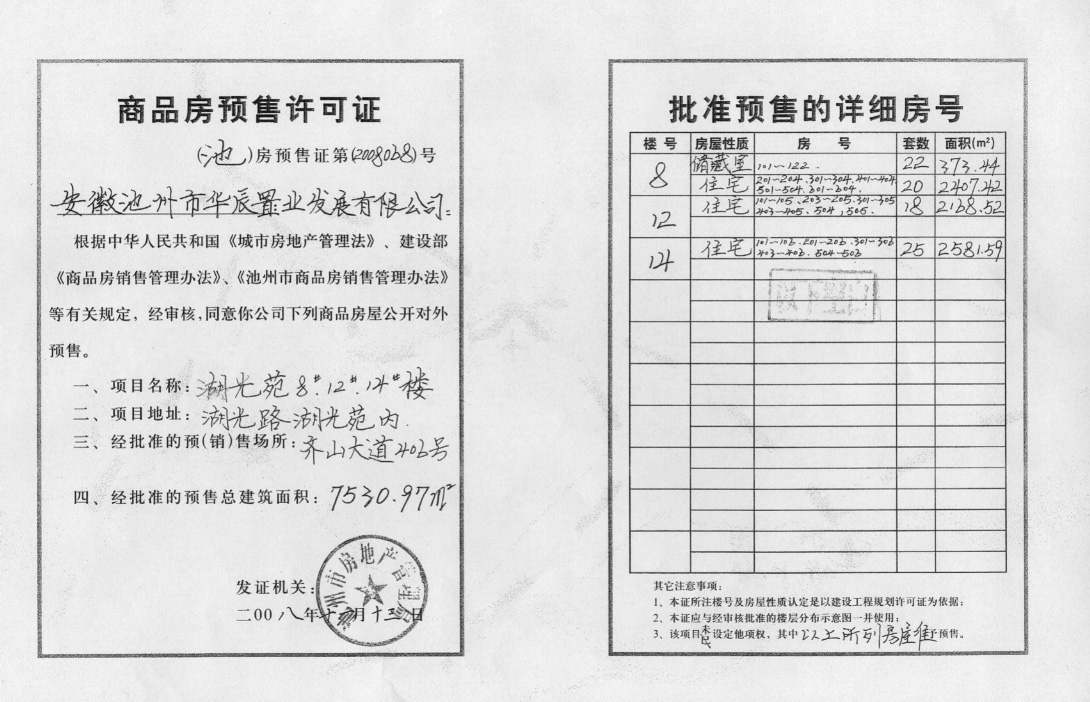 商品房预售许可证
(池)房预售证第(2008068)号
安徽池州市华辰置业发展有限公司:
根据中华人民共和国《城市房地产管理法》、建设部
《商品房销售管理办法》、《池州市商品房销售管理办法》
等有关规定,经审核,同意你公司下列商品房屋公开对外
预售。
一、项目名称:湖光苑8#.12#.14#楼
二、项目地址:湖光路湖光苑内.
三、经批准的预(销)售场所:齐山大道406号
四、经批准的预售总建筑面积:7530.97m²
发证机关:
池州市房地产管理局
二00八年十二月十三日
批准预售的详细房号
楼号 房屋性质 房号 套数 面积(m²)
8 储藏室 101~122. 22 373.44
住宅 201~204.301~304.401~404 501~504.601~604. 20 2407.42
12 住宅 101~105.203~205.301~305 403~405.504,505. 18 2168.52
14 住宅 101~106.201~206.301~306 403~406.504~506 25 2581.59
以下空白
其它注意事项:
1、本证所注楼号及房屋性质认定是以建设工程规划许可证为依据;
2、本证应与经审核批准的楼层分布示意图一并使用;
3、该项目未设定他项权,其中以上所列房屋准予预售。